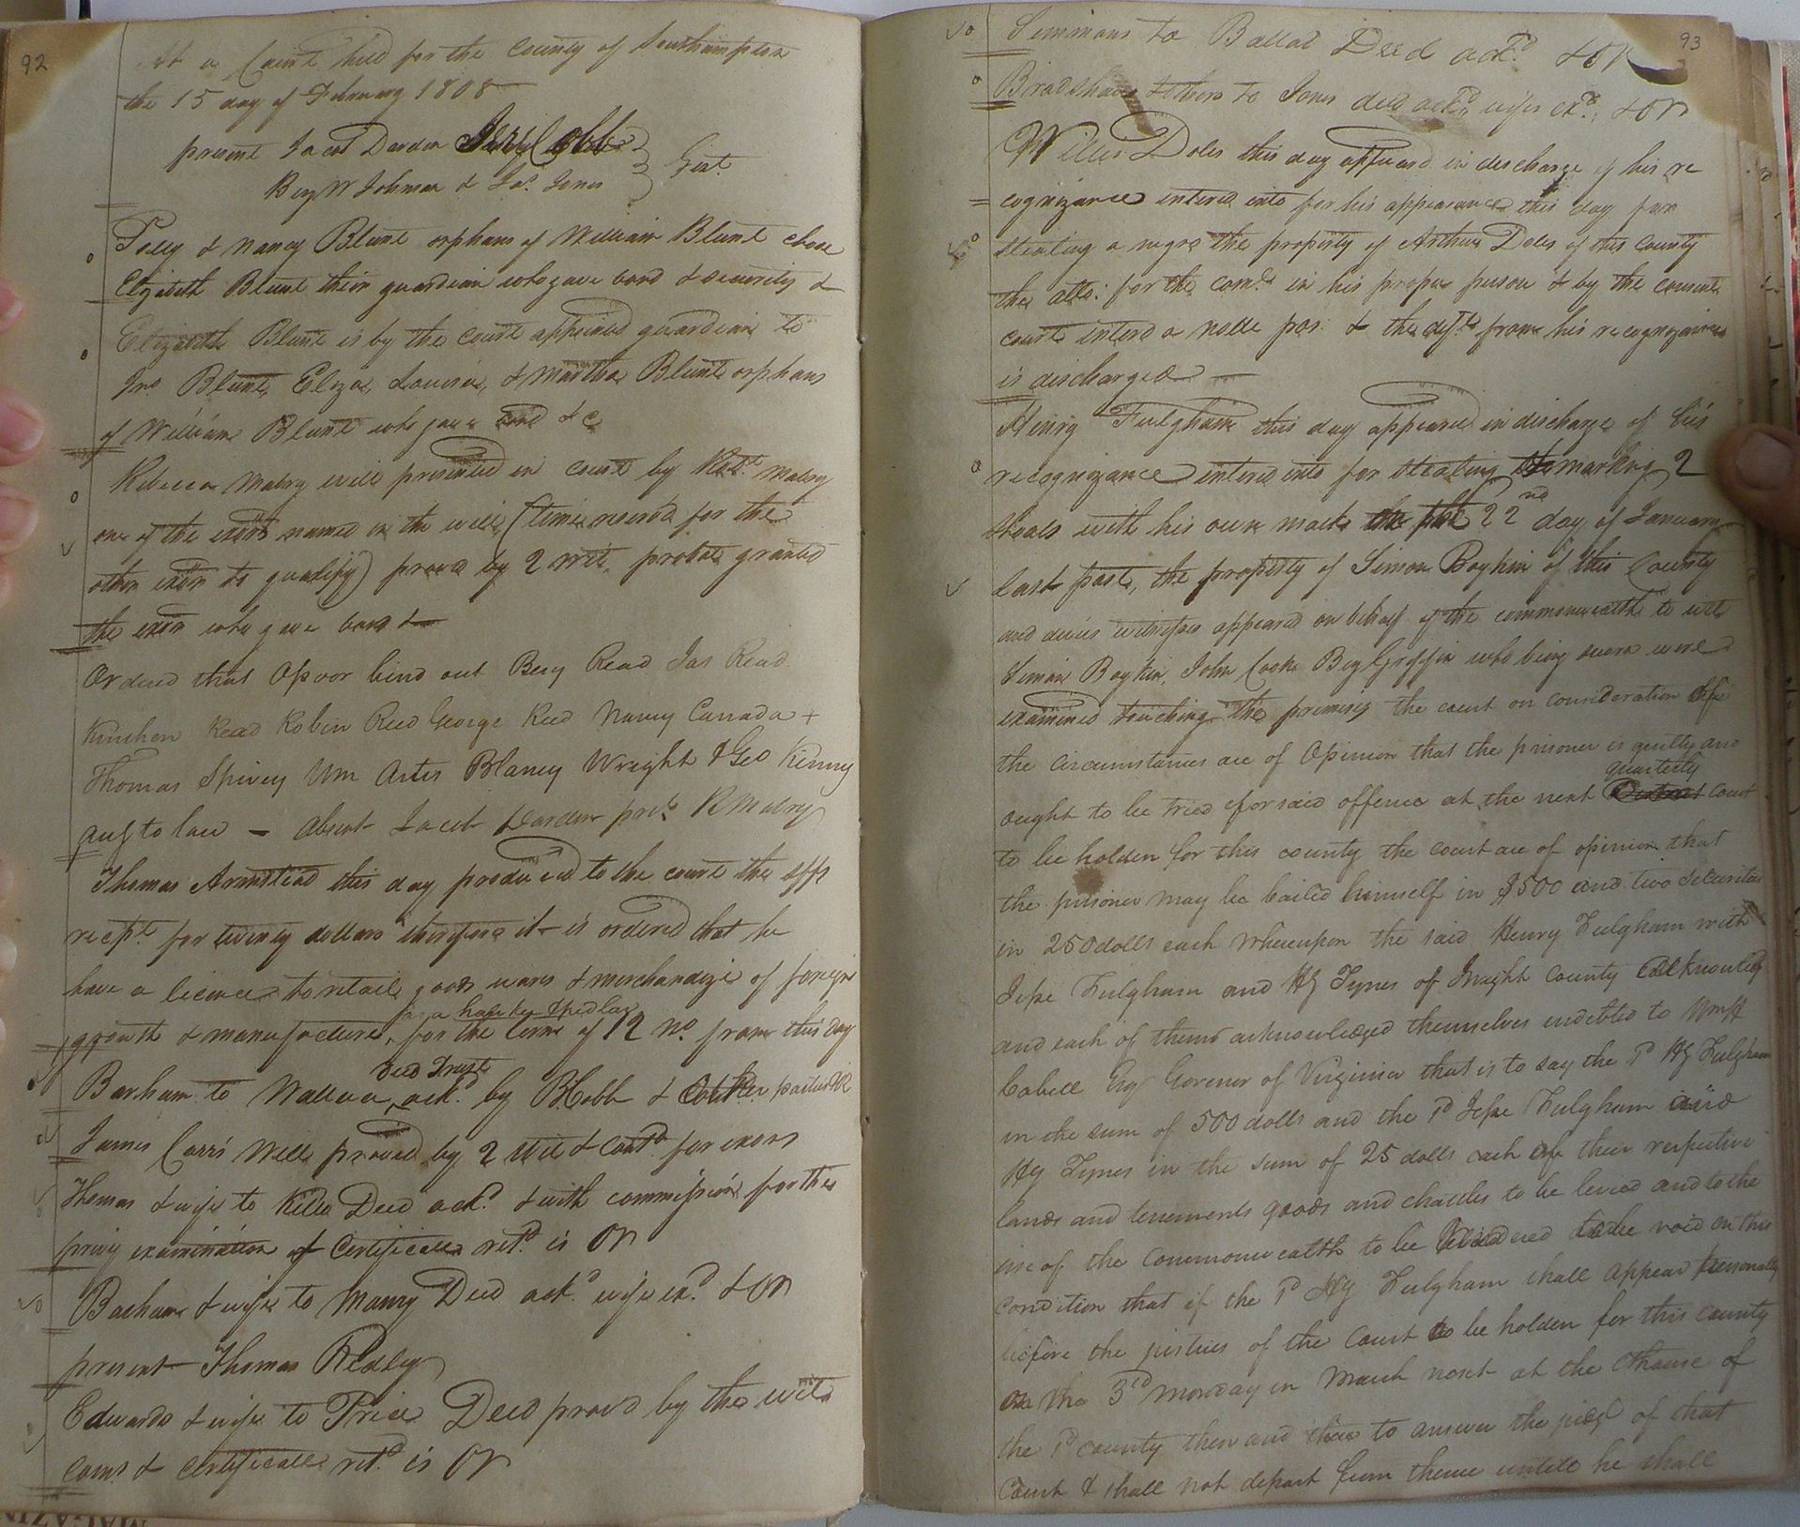 92
At a Court held for the County of Southampton
the 15 day of February 1808
present Jacob Darden
Benj W Johnson & Jas. Jones } Gent.
Polly & Nancy Blunt orphans of William Blunt chose
Elizabeth Blunt their guardian who gave bond & security &
Elizabeth Blunt is by the court appointed guardian to
Jno. Blunt, Eliza, Louisia, & Martha Blunt orphans
of William Blunt who gave bond & c
Rebecca Mabry will presented in court by Robt. Mabry
one of the exors named in the will (time reserved for the
other exor to qualify) proved by 2 wit. probate granted
the exor who gave bond &
Ordered that Opoor bind out Benj Read Jas Read
Kinchen Read Robin Reed George Reed Nancy Canada +
Thomas Spivey Wm Artis Blaney Wright & Geo Kenny
to law - Absent Jacob Darden prest. R Mabry
Thomas Armstead this day produced to the court the
recpt. for twenty dollars therefore it is ordered that he
have a licence to retail goods wares & merchandize of foreign
as a hawker & pedlar
growth & manufacture, for the term of 12 mo. from this day
Deed Trust
Barham to Wallace, ackd. by B Cobb &
James Carrs Will proved by 2 wit & contd. for exors
Thomas & wife to Kello Deed ackd. & with commission for the
privy examination & certificate retd. is OR
Barham & wife to Manry Deed ackd. wife exd. & OR
present Thomas Ridley
Edwards & wife to Price Deed proved by the wits
Coms & certificate retd. is OR
93
Simmons to Deed ackd. & OR
Bradshaw & others to Jones deed ackd. wifes exd. & OR
Willis Doles this day appeard in discharge of his re
cognizance entered into for his appearance this day for
stealing a negro the property of Arthur Doles of this County
the atto. for the comth. in his proper person & by the consent
court enterd a nolle pos. & the deft. from his recognizance
is discharged
Henry Fulgham this day appeared in discharge of his
recognizance entered into for stealing marking 2
shoals with his own mark the 22nd day of January
last past, the property of Simon Boykin of this County
and divers witnesses appeared on behalf of the commonwealth to wit
Simon Boykin, John Cooke Benj Griffin who being sworn were
examined touching the premises the court on consideration of
the circumstances are of Opinion that the prisoner is guilty and
quarterly
ought to be tried for said offence at the next District Court
to be holden for this county the court are of opinion that
the prisoner may be bailed himself in $500 and two securities
in 250 dolls each Whereupon the said Henry Fulgham with
Jesse Fulgham and Hy Tynes of Insight County acknowledg
and each of them acknowledged themselves indebted to Wm H
Cabell Esqr Govenor of Virginia that is to say the sd Hy Fulgham
in the sum of 500 dolls and the sd Jesse Fulgham and
Hy Tynes in the sum of 25 dolls each of their respective
lands and tenements goods and chattles to be levied and to the
use of the commonwealth to be rendered to be void on this
condition that if the sd Hy Fulgham shall appear personally
before the justices of the Court to be holden for this county
on the 3rd Monday in March next at the Cthouse of
the sd county then and there to answer the of that
Court & shall not depart from thence untill he shall